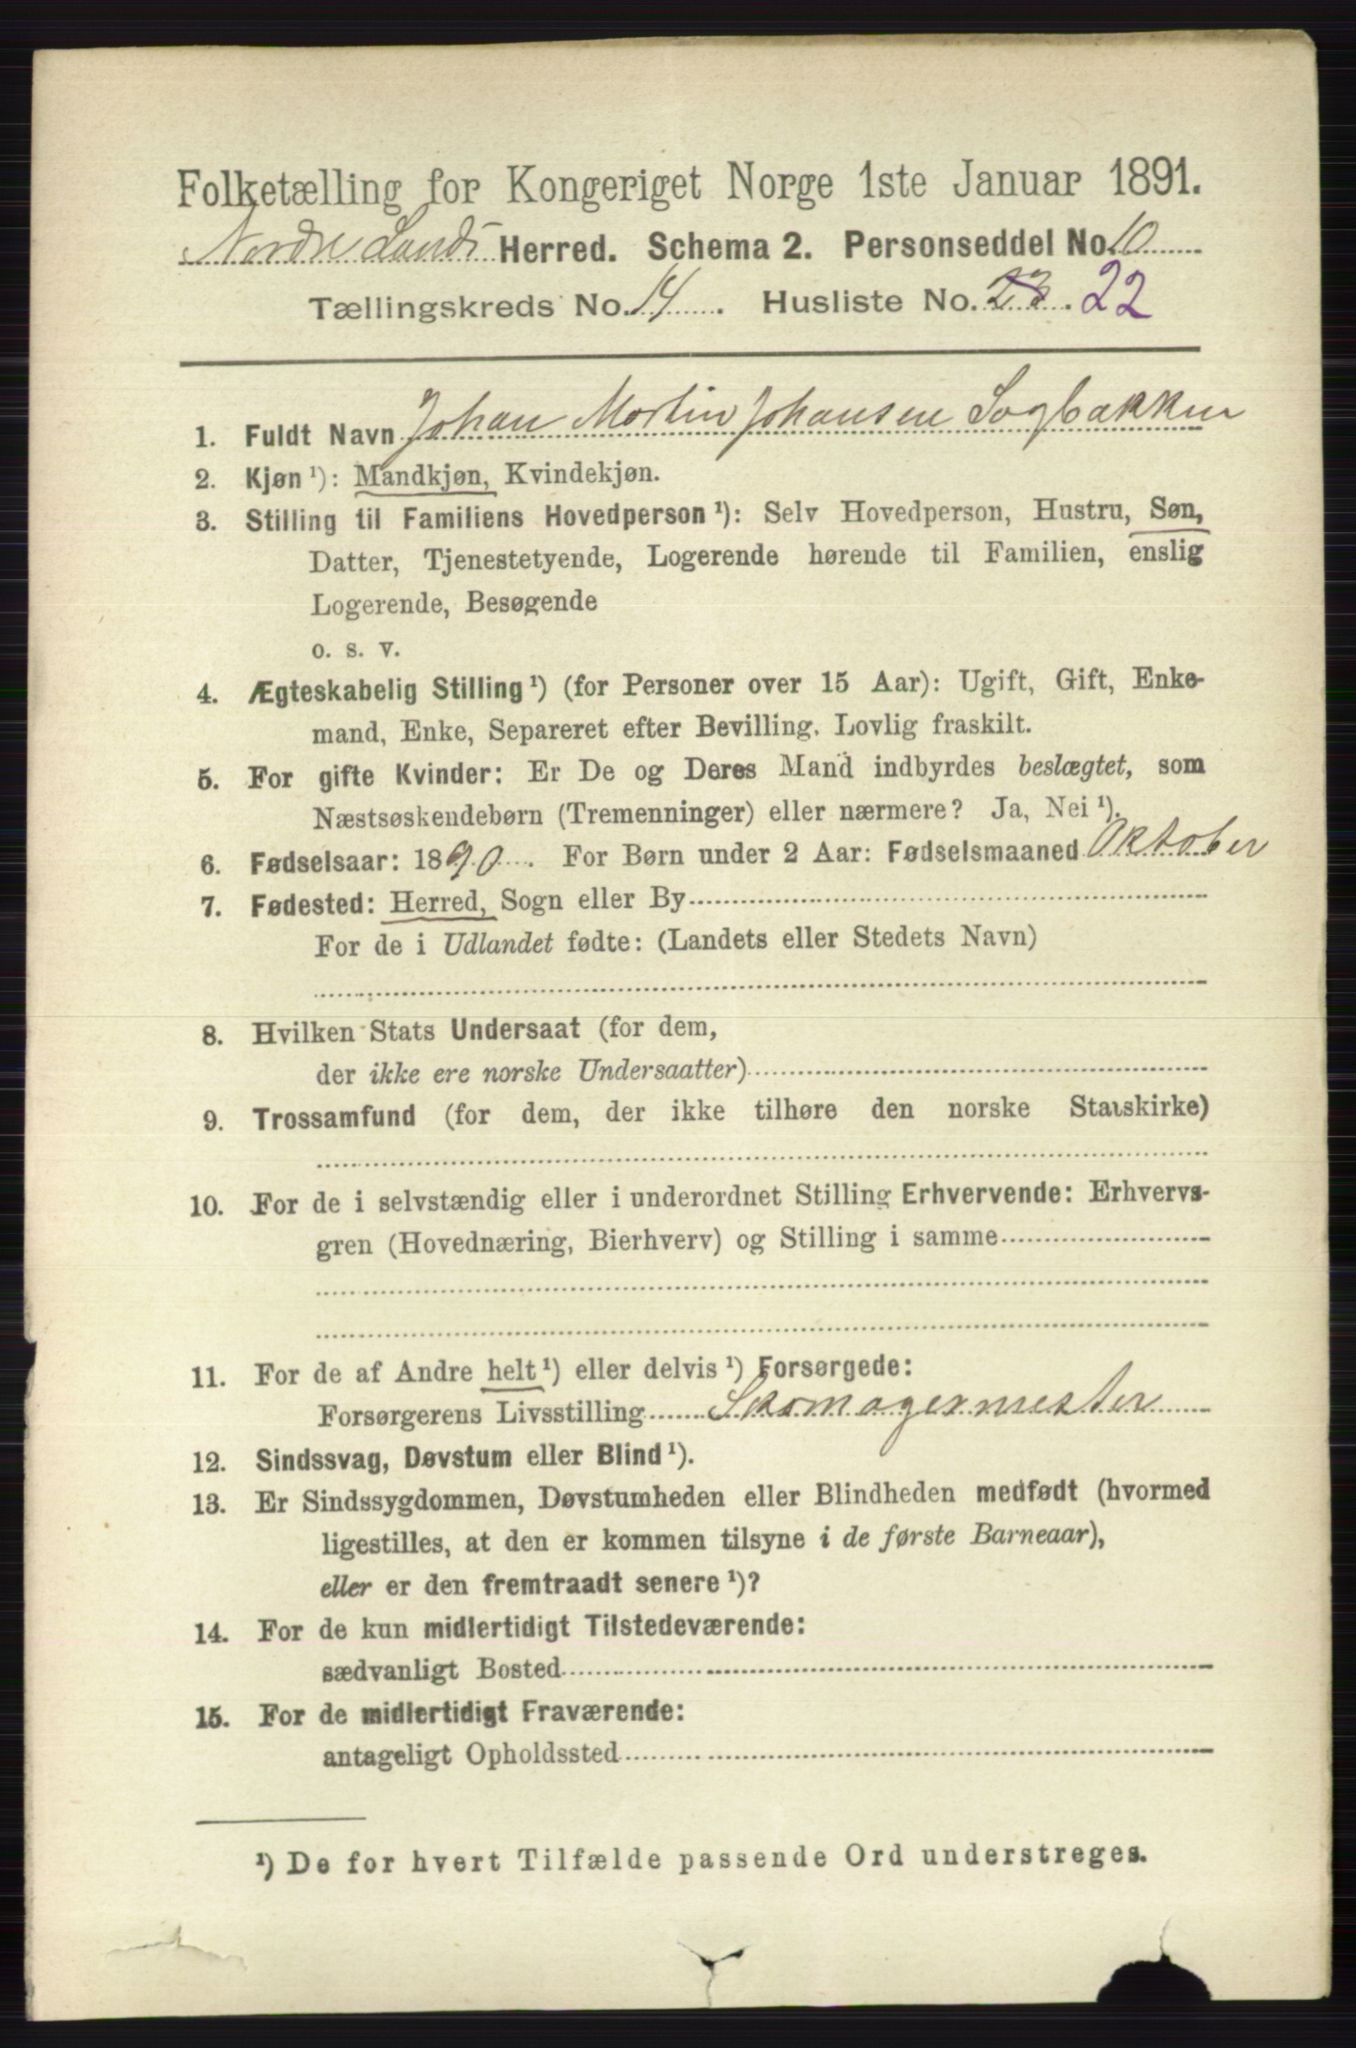 Folketælling for Kongeriget Norge 1ste Januar 1891.
Nordre Lands Herred. Schema 2. Personseddel No. 10
Tællingskreds No. 14. Husliste No. 23. 22
1. Fuldt Navn Johan Martin Johansen Sogbakken
2. Kjøn ¹): Mandkjøn, Kvindekjøn.
3. Stilling til Familiens Hovedperson ¹): Selv Hovedperson, Hustru, Søn,
Datter, Tjenestetyende, Logerende hørende til Familien, enslig
Logerende, Besøgende
o. s. v.
4. Ægteskabelig Stilling ¹) (for Personer over 15 Aar): Ugift, Gift, Enke-
mand, Enke, Separeret efter Bevilling. Lovlig fraskilt.
5. For gifte Kvinder: Er De og Deres Mand indbyrdes beslægtet, som
Næstsøskendebørn (Tremenninger) eller nærmere? Ja, Nei ¹).
6. Fødselsaar: 1890. For Børn under 2 Aar: Fødselsmaaned Oktober
7. Fødested: Herred, Sogn eller By
For de i Udlandet fødte: (Landets eller Stedets Navn)
8. Hvilken Stats Undersaat (for dem,
der ikke ere norske Undersaatter)
9. Trossamfund (for dem, der ikke tilhøre den norske Statskirke)
10. For de i selvstændig eller i underordnet Stilling Erhvervende: Erhvervs-
gren (Hovednæring, Bierhverv) og Stilling i samme
11. For de af Andre helt ¹) eller delvis ¹) Forsørgede:
Forsørgerens Livsstilling Skomagermester
12. Sindssvag, Døvstum eller Blind ¹).
13. Er Sindssygdommen, Døvstumheden eller Blindheden medfødt (hvormed
ligestilles, at den er kommen tilsyne i de første Barneaar),
eller er den fremtraadt senere ¹)?
14. For de kun midlertidigt Tilstedeværende:
sædvanligt Bosted
15. For de midlertidigt Fraværende:
antageligt Opholdssted
¹) De for hvert Tilfælde passende Ord understreges.